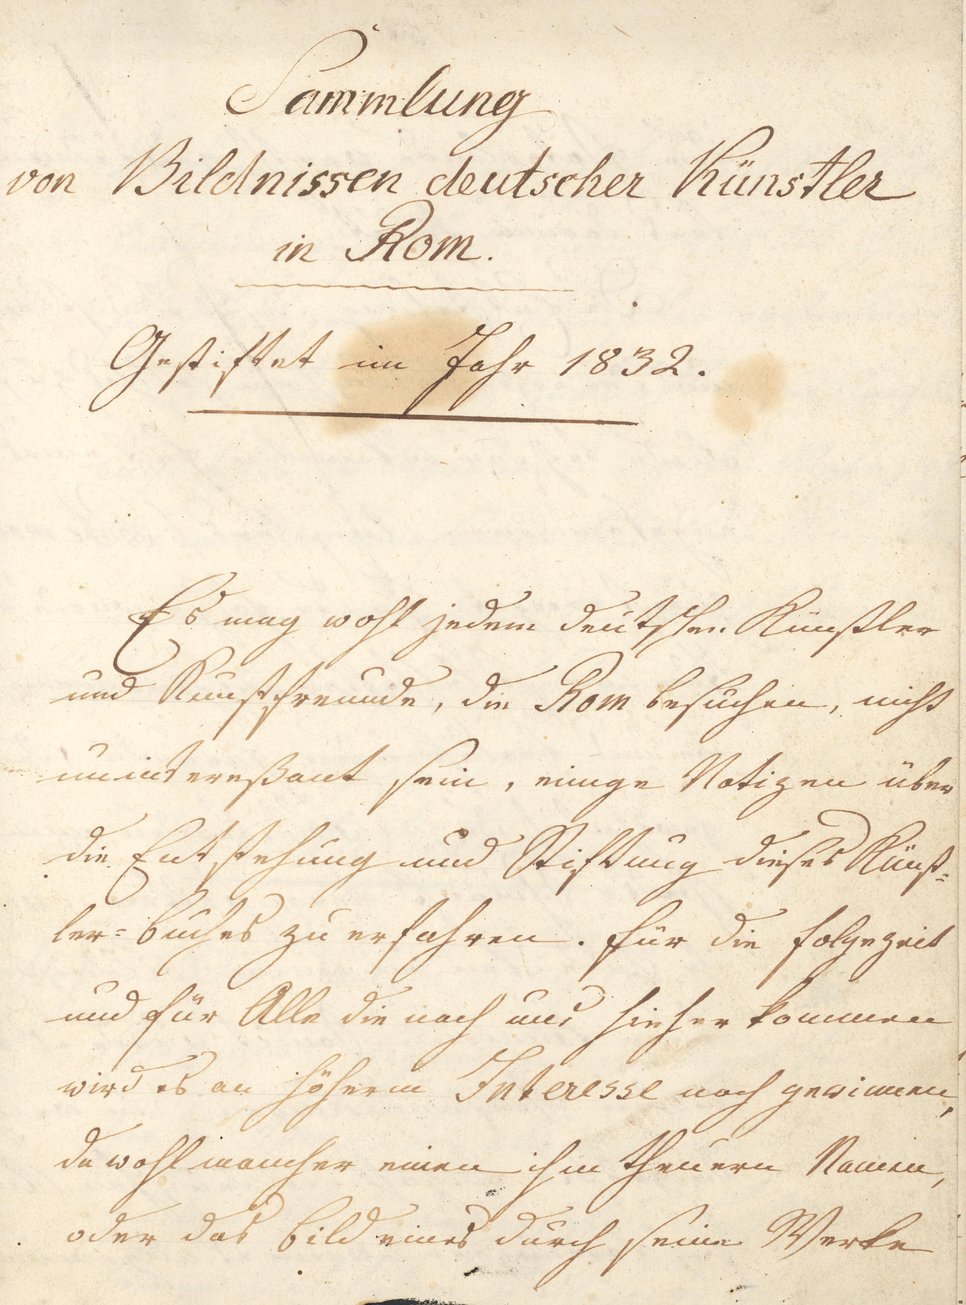 Sammlung
von Bildnissen deutscher Künstler
in Rom.
Gestiftet im Jahr 1832.
Es mag wohl jedem deutschen Künstler
und Kunstfreunde, die Rom besuchen, nicht
uninthereßant sein, einige Notizen über
die Entstehung und Stiftung dieses Künst-
ler-buches zu erfahren. Für die Folgezeit
und für Alle die nach uns hieher kommen
wird es an höherm Interesse noch gewinnen,
da wohl mancher einen ihm theuern Namen,
oder das Bild eines durch seine Werke